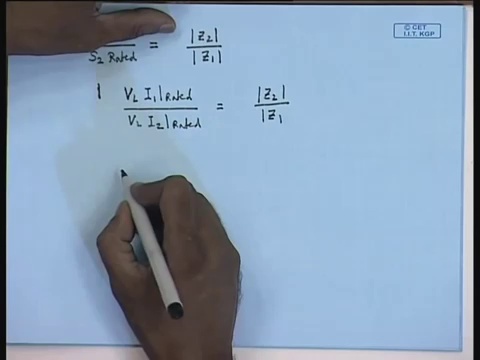 © CET
I.I.T. KGP
S₂ Rated = |Z₂| / |Z₁|
V_L I₁|Rated / V_L I₂|Rated = |Z₂| / |Z₁